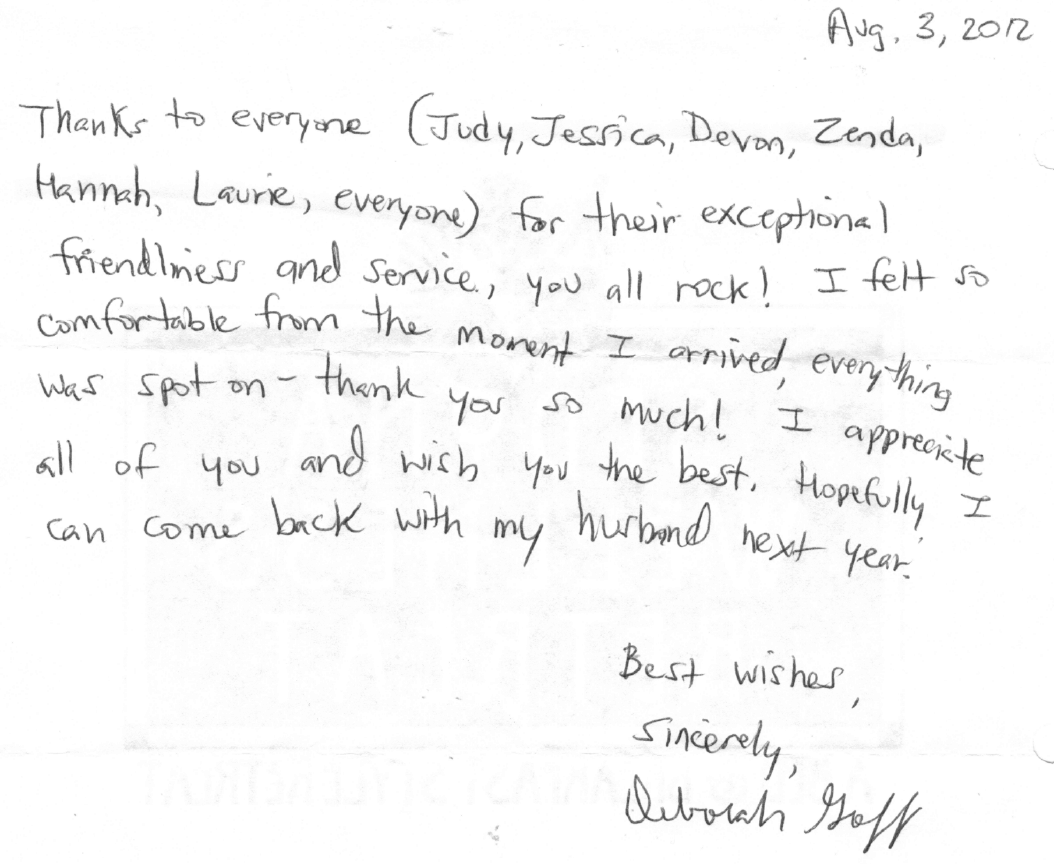 Aug. 3, 2012
Thanks to everyone (Judy, Jessica, Devon, Zenda,
Hannah, Laurie, everyone) for their exceptional
friendliness and service, you all rock! I felt so
comfortable from the moment I arrived, everything
was spot on - thank you so much! I appreciate
all of you and wish you the best. Hopefully I
can come back with my husband next year.
Best wishes,
Sincerely,
Deborah Goff